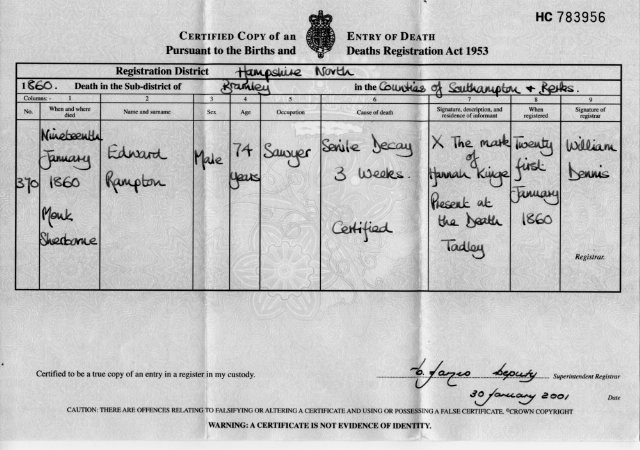 HC 783956
CERTIFIED COPY of an ENTRY OF DEATH
Pursuant to the Births and Deaths Registration Act 1953
Registration District Hampshire North
1860. Death in the Sub-district of Bramley in the Counties of Southampton & Berks.
Columns:- 1 2 3 4 5 6 7 8 9
No. When and where died Name and surname Sex Age Occupation Cause of death Signature, description, and residence of informant When registered Signature of registrar
370 Nineteenth January 1860 Monk Sherborne Edward Rampton Male 74 years Sawyer Senile Decay 3 Weeks. Certified X The mark of Hannah Kinge Present at the Death Tadley Twenty first January 1860 William Dennis Registrar.
Certified to be a true copy of an entry in a register in my custody.
Deputy Superintendent Registrar
30 January 2001 Date
CAUTION: THERE ARE OFFENCES RELATING TO FALSIFYING OR ALTERING A CERTIFICATE AND USING OR POSSESSING A FALSE CERTIFICATE. ©CROWN COPYRIGHT
WARNING: A CERTIFICATE IS NOT EVIDENCE OF IDENTITY.